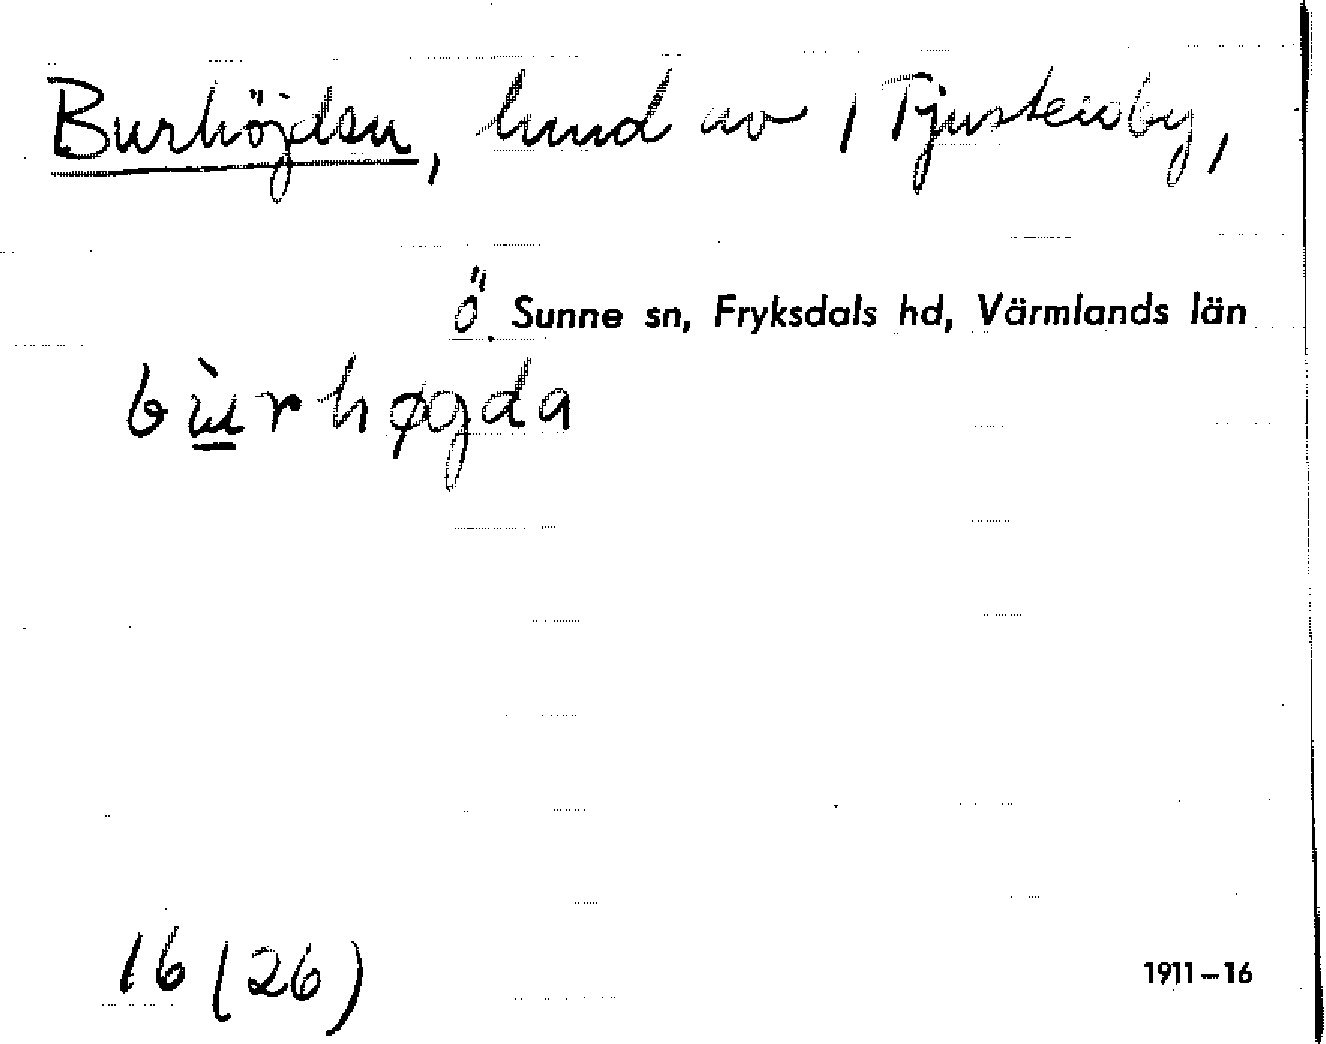 Burhöjden, lund av 1 Tjusteruby,
Ö. Sunne sn, Fryksdals hd, Värmlands län
bùrhøgda
16 (26)
1911–16